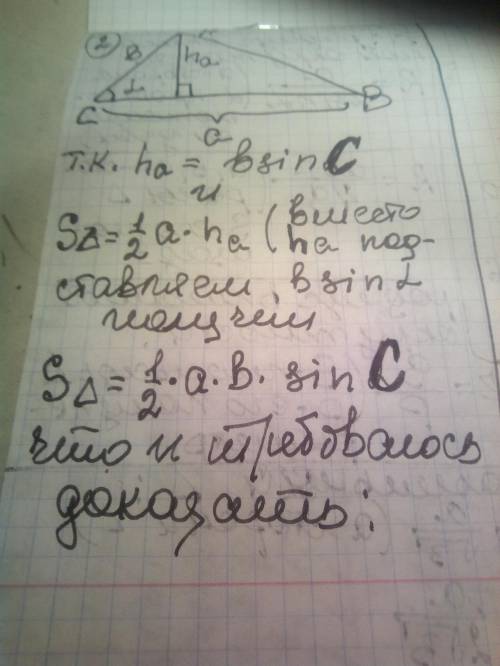 2
в
hа
А
α
С
В
а
т.к. hа = вsinC
и
S∆ = 1/2 а · hа (вместо
hа под-
ставляем вsinα
получим
S∆ = 1/2 · а · в · sin C
что и требовалось
доказать: